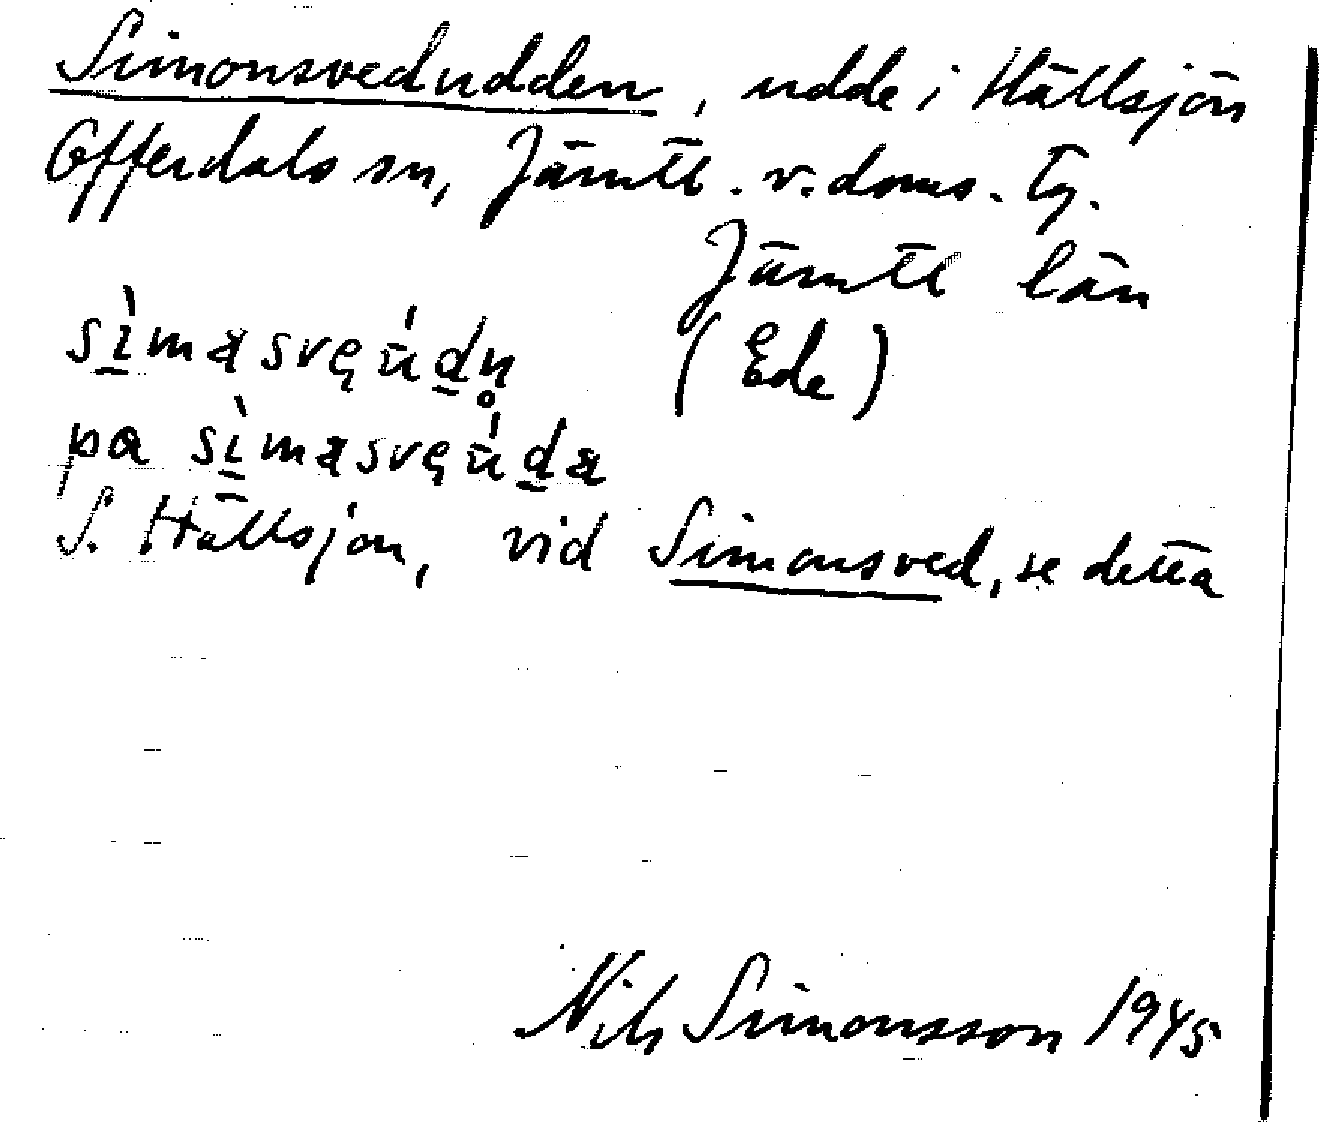 Simonsvedudden, udde i Hällsjön
Offerdals sn, Jämtl. v. doms. tg.
Jämtl län
sìmasvęúdn̥ (Ede)
pa sìmasvęúda
S. Hällsjön, vid Simonsved, se detta
Nils Simonsson 1945